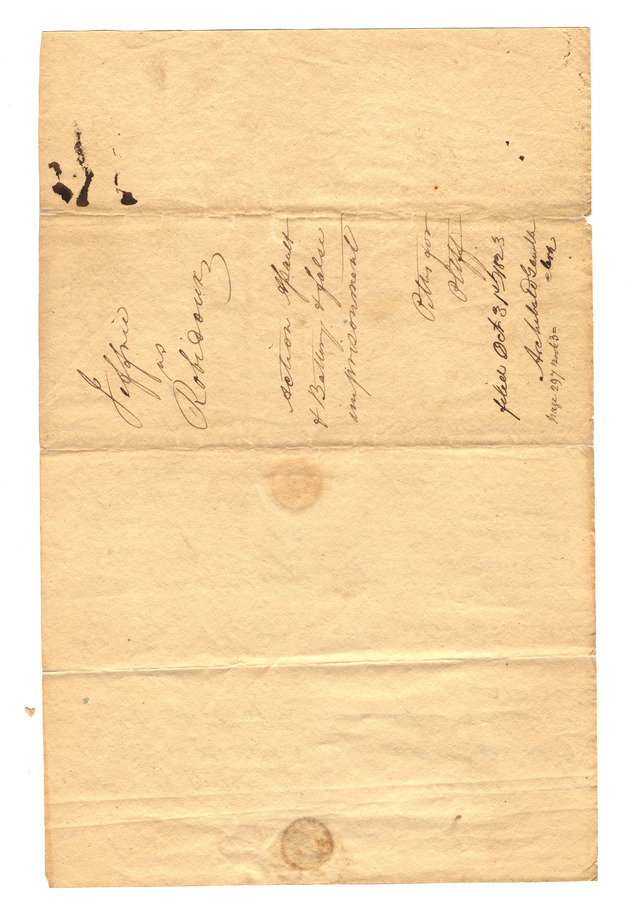 Jeffrie
vs
Robidoux
action Assault
& Battery & false
imprisonment
Pltffs
filed Oct 31st 1823
Archibald Gamble
Clk
page 297 book 3=